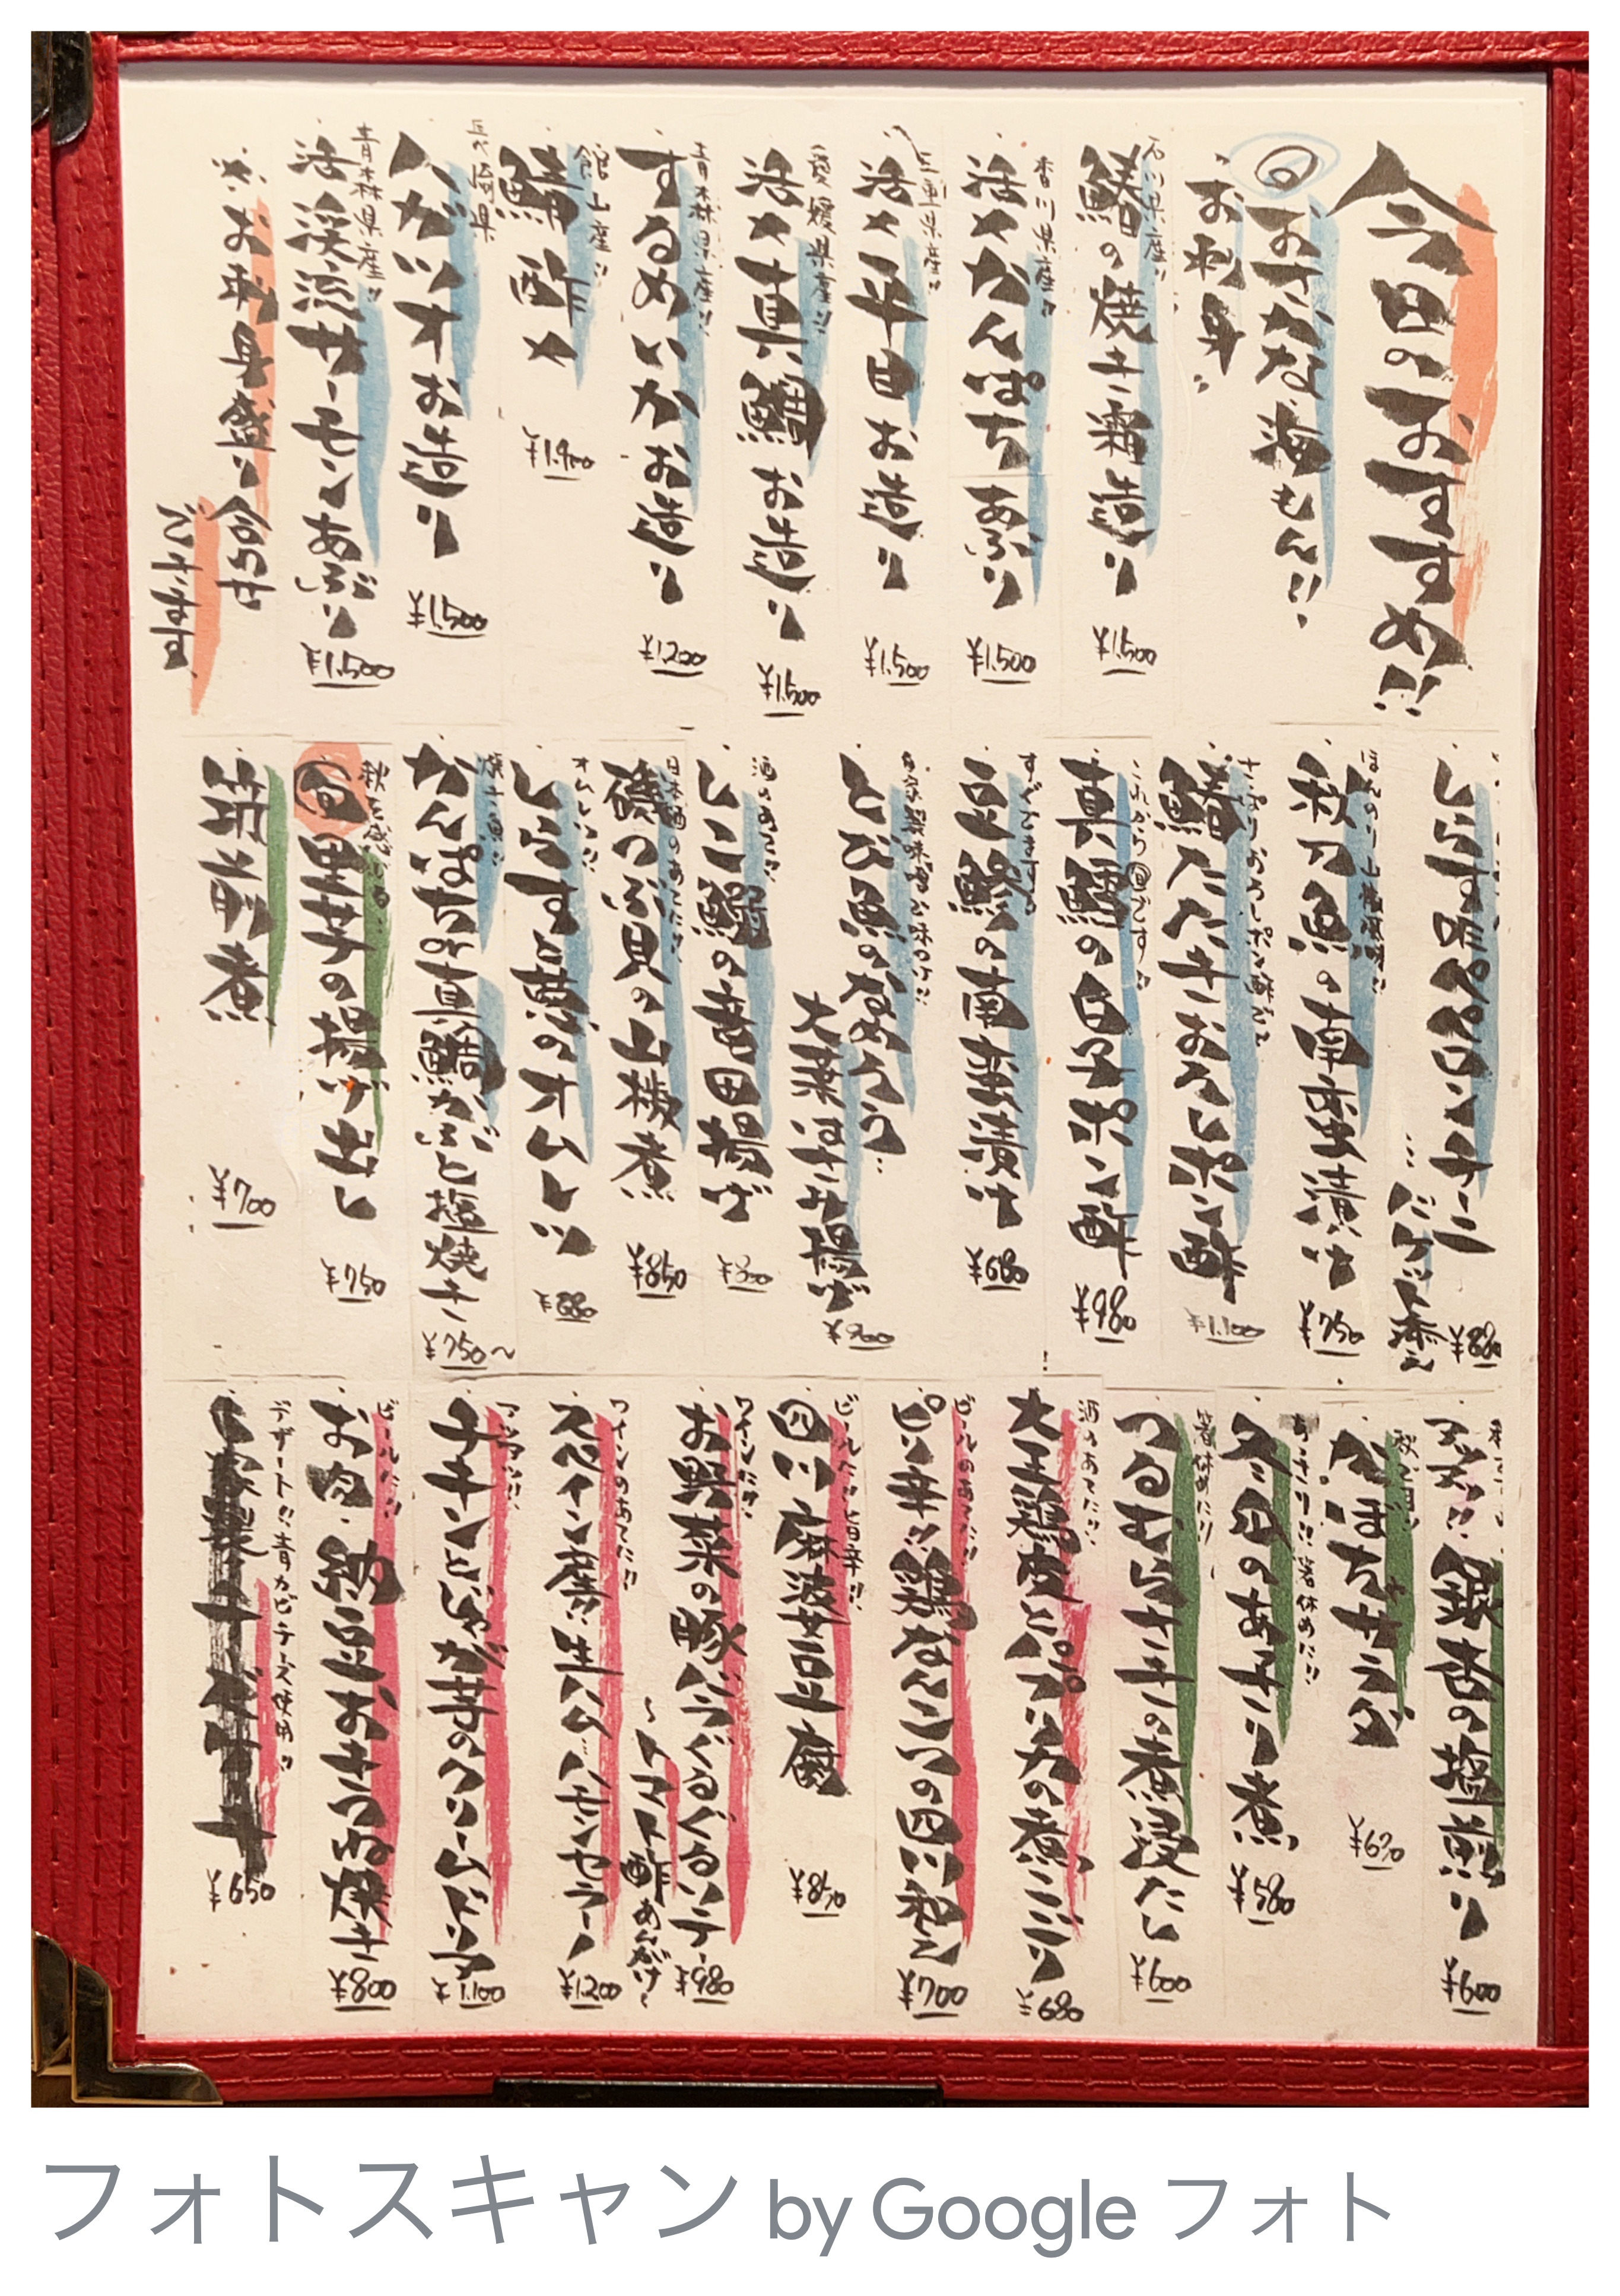 今日のおすすめ!!
旬おさかな海もん!!
お刺身
石川県産!!
鰆の焼き霜造り
¥1,500
香川県産!!
活〆かんぱちあぶり
¥1,500
三重県産!!
活〆平目お造り
¥1,500
愛媛県産!!
活〆真鯛お造り
¥1,500
青森県産!!
するめいかお造り
¥1,200
館山産!!
鯖酢〆
長崎県
カツオお造り
¥1,500
青森県産!!
活渓流サーモンあぶり
¥1,500
※お刺身盛り合わせ
できます
しらすペペロンチーニ
…バケット添え
¥880
ほんのり山椒風味!!
秋刀魚の南蛮漬け
¥750
さっぱりおろしポン酢で
鰆たたきおろしポン酢
¥1,100
これから旬です!!
真鱈の白子ポン酢
¥980
すぐでますよ
豆鯵の南蛮漬け
¥680
自家製味噌が味のケ!!
とび魚のなめろう…
大葉はさみ揚げ
¥900
酒のあてに!!
しこ鰯の竜田揚げ
日本酒のあてに!!
磯つぶ貝の山椒煮
¥850
オムレツ!!
しらすと葱のオムレツ
¥880
焼き魚!!
かんぱちor真鯛かぶと塩焼き
¥750〜
秋を感じる…
旬里芋の揚げ出し
¥750
筑前煮
¥700
アツアツ!!銀杏の塩煎り
¥600
かぼちゃサラダ
すっきり!!箸休めに!!
冬瓜のあっさり煮
¥580
箸休めに!!
つるむらさきの煮浸だし
¥600
酒のあてに!!
大王鶏皮とプリ力の煮こごり
¥680
ビールのあてに!!
ピリ辛!!鶏なんこつの四川和え
¥700
ビールに!!旨辛!!
四川麻婆豆腐
¥850
ワインに!!
お野菜の豚バラぐるぐるソテー
〜トマト酢あんがけ〜
¥980
ワインのあてに!!
スペイン産!!生ハム…ハモンセラーノ
¥1,200
アツアツ!!
チキンとじゃが芋のクリームドリア
¥1,100
ビールに!!
お肉・納豆おきつね焼き
¥800
デザート!!青カビチーズ使用!!
¥650
フォトスキャン by Google フォト